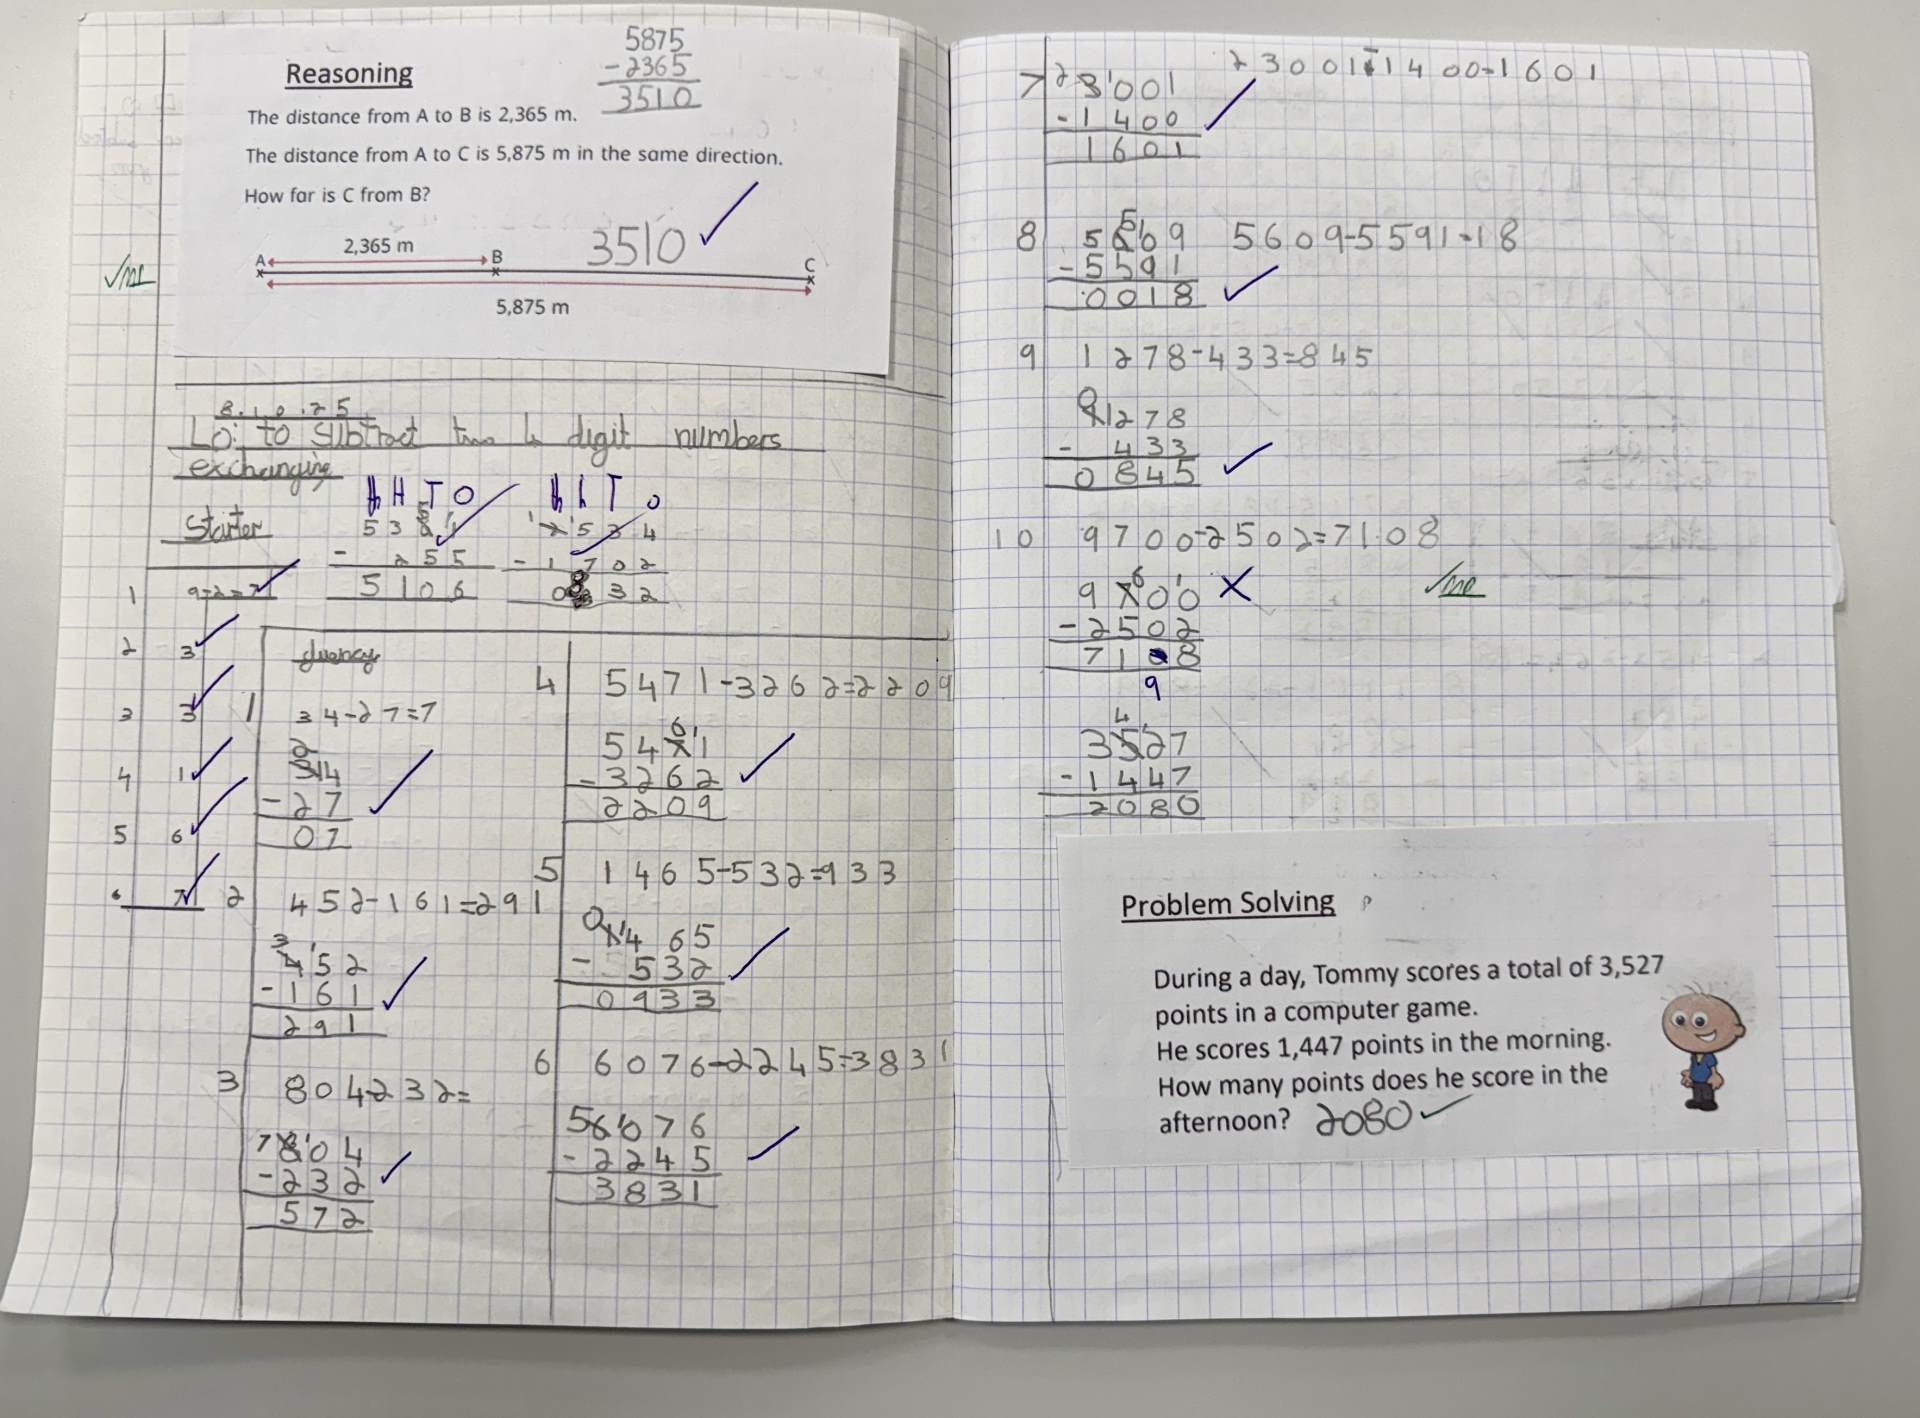 Reasoning
5875
-2365
3510
The distance from A to B is 2,365 m.
The distance from A to C is 5,875 m in the same direction.
How far is C from B?
3510
2,365 m
A B C
5,875 m
8.10.25
LO: to subtract two 4 digit numbers
exchanging
Starter
H T O
5 3 6 1
- 2 5 5
5 1 0 6
T O
1 2 1 5 3 4
- 1 7 0 2
0 8 3 2
1 9-2=7
2 3
3 3
4 1
5 6
6 7
fluency
1 34-27=7
2
314
-27
07
2 452-161=291
3 1
452
-161
291
3 804-232=
7 8 1 0 4
-232
572
4 5471-3262=2209
6 1
5471
-3262
2209
5 1465-532=933
0 1 1 4 6 5
- 532
0933
6 6076-2245=3831
5 6 1 0 7 6
-2245
3831
7 2 3 1 0 0 1
-1400
1601
3001-1400=1601
8 5609-5591=18
5
5 6 1 0 9
-5591
0018
9 1278-433=845
0
1 1 2 7 8
- 433
0845
10 9700-2502=7108
6 1
9700
-2502
71 8
9
4 1
3527
-1447
2080
Problem Solving
During a day, Tommy scores a total of 3,527
points in a computer game.
He scores 1,447 points in the morning.
How many points does he score in the
afternoon? 2080